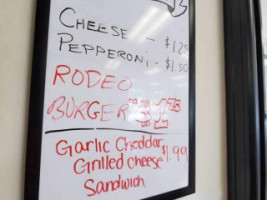 CHEESE - $1.25
PEPPERONI - $1.50
RODEO
BURGER
Garlic Cheddar
Grilled cheese $1.99
Sandwich